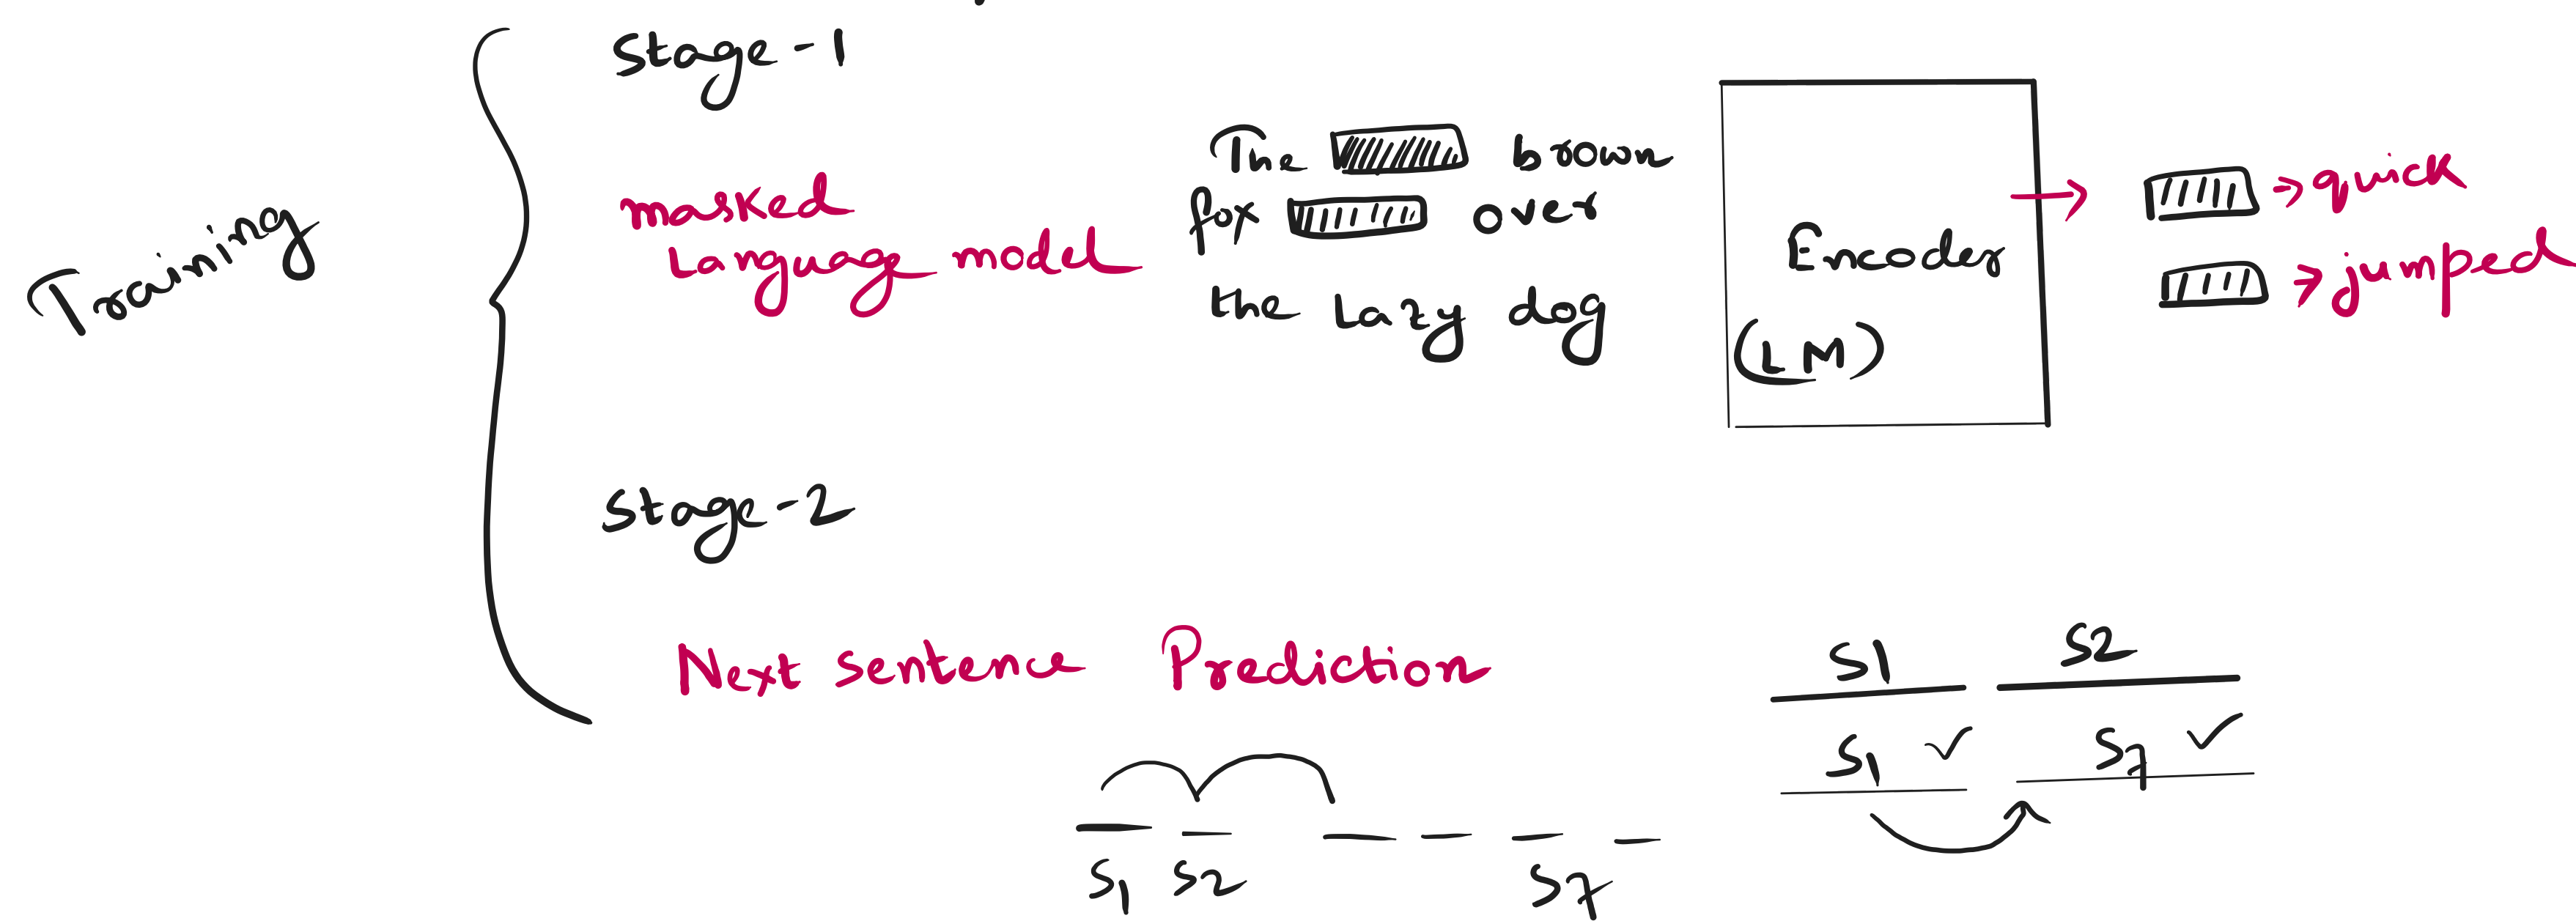 Training
Stage-1
masked
Language model
The brown
fox over
the Lazy dog
Encoder
(LM)
→ quick
→ jumped
Stage-2
Next Sentence Prediction
S1 S2
S1 ✓ S7 ✓
S1 S2 S7